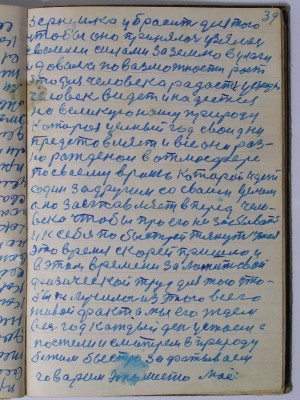 39
зернышка и бросить для того
чтобы оно принялося взялось
своими силами за землю
и давала по возможности рост
этого человека радость
человек видет и надеется
на великую нашу природу
которая целый год свои дни
представляет и все они раз-
но рожденое в атмосфере
по своему время которой идет
один за другим со своим
оно заставляет вперед чело-
века чтобы про его не забывать
и к себе по быстрей тянуть чтоб
это время скорей пришло и
в этом времени заложит свой
физический труд для того что-
бы получилось из этого всего
живой факт а мы его ждем
весь год каждый ден устаем с
постели и смотрем в природу
бежим быстро захватываем
говорим это место моё: